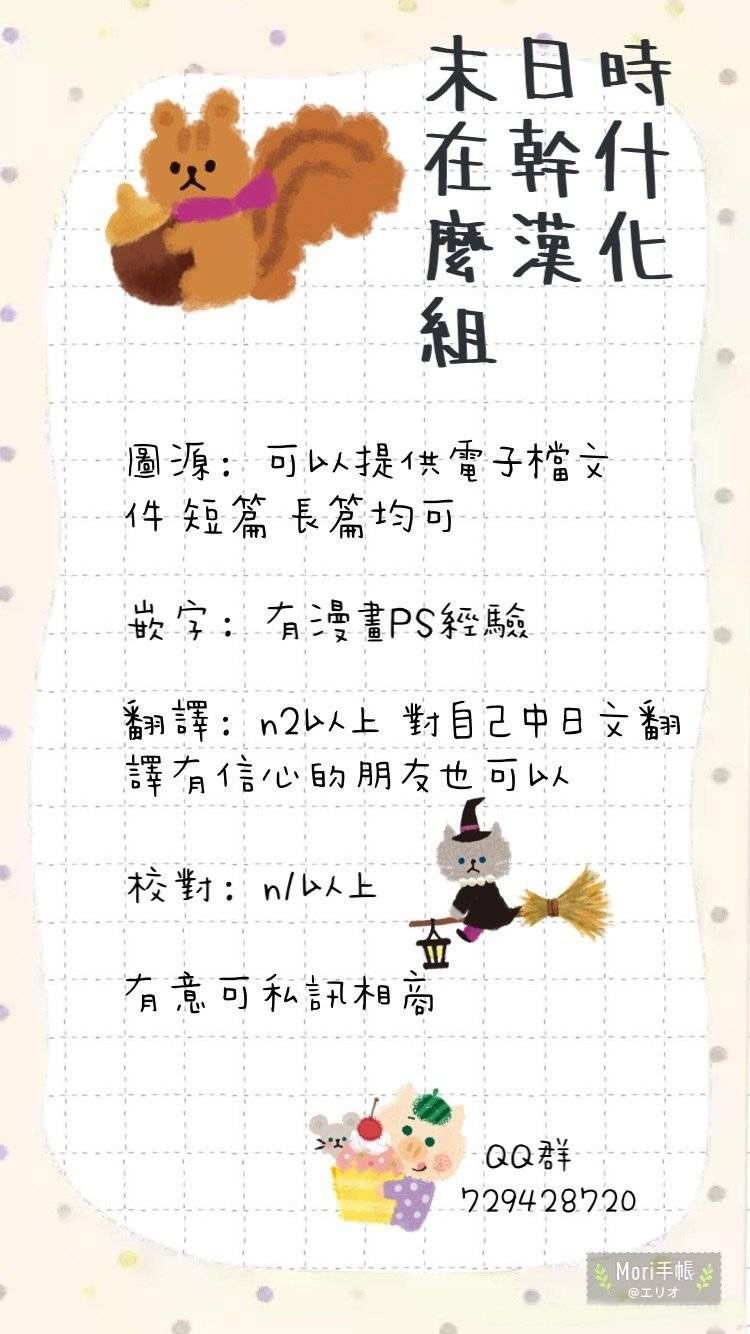 末日時
在幹什
麼漢化
組
圖源：可以提供電子檔文
件 短篇 長篇均可
嵌字：有漫畫PS經驗
翻譯：n2以上 對自己中日文翻
譯有信心的朋友也可以
校對：n1以上
有意可私訊相商
QQ群
729428720
Mori手帳
@エリオ